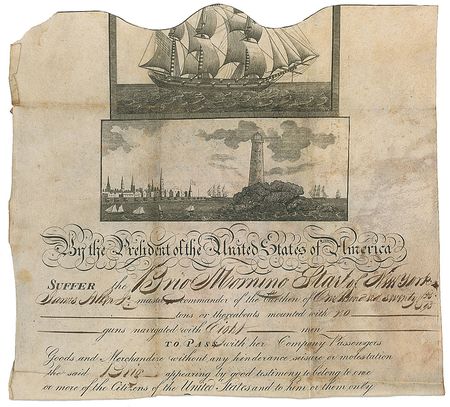 By the President of the United States of America
SUFFER the Brig Morning Star of New York
James master or commander of the burthen of One Hundred
tons or thereabouts mounted with no
guns navigated with Eight men
TO PASS with her Company Passengers
Goods and Merchandize without any hinderance seisure or molestation
the said Brig appearing by good testimony to belong to one
or more of the Citizens of the United States and to him or them only